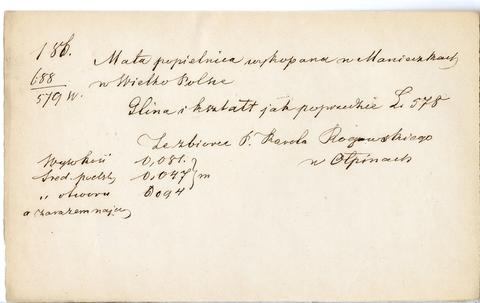 188.
688
579 W.
Mała popielnica wykopana w Manieczkach
w Wielko Polsce
Glina i kształt jak poprzednie L. 578
Ze zbiorów P. Karola Rogawskiego
w Ołpinach
Wysokość 0,081.
Śred. podst. 0,047 m
„ otworu 0,094
a zarazem najw.